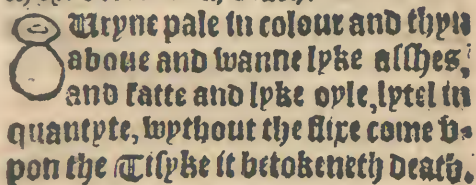 Uryne pale in colour and thyn
aboue and wanne lyke asshes,
and fatte and lyke oyle, lytel in
quantyte, wythout the flixe come v-
pon the Tisyke it betokeneth death.